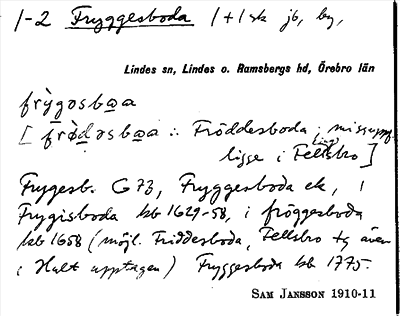 1-2 Fryggesboda 1+1 sk jb, by,
Lindes sn, Lindes o. Ramsbergs hd, Örebro län
frỳgəsbɷa
[frø̀dəsbɷa : Fröddesboda; missuppf.
ligge i Fellsbro]
Frygesb. G 73, Fryggesboda ek, 1
Frygisboda kb 1629-58, i fröggesboda
kb 1658 (möjl. Friddesboda, Fellsbro ty även
i Hult upptagen) Fryggesboda kb 1775.
SAM JANSSON 1910-11